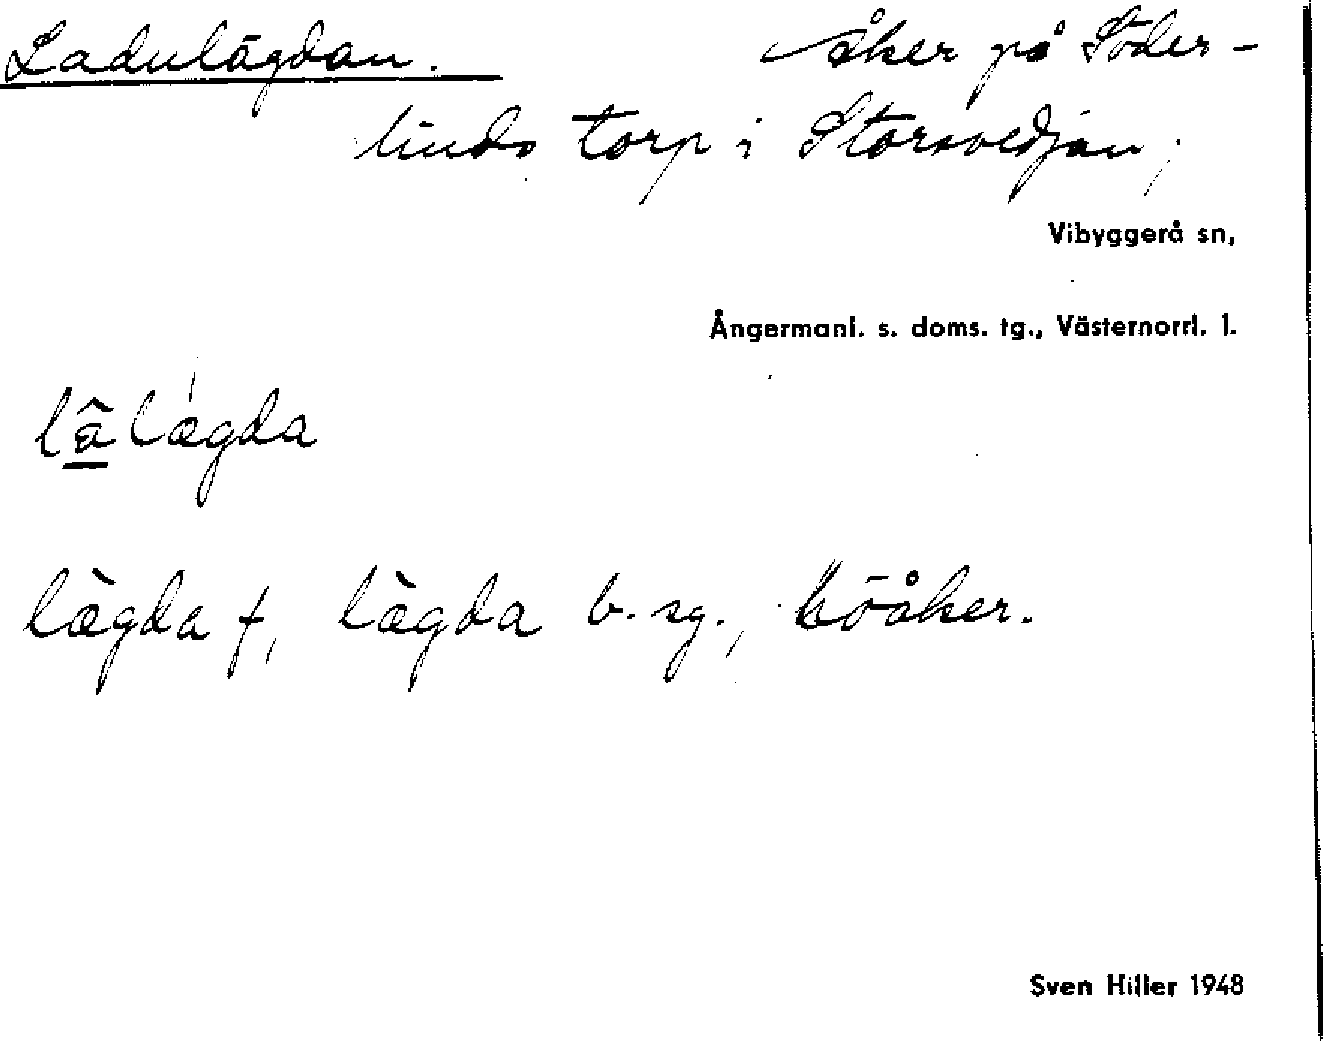 Ladulägdan. åker på Söder-
linds torp i Storsvedjan,
Vibyggerå sn,
Ångermanl. s. doms. tg., Västernorrl. l.
lâ̱lǽgda
læ̀gda f, læ̀gda b. sg., höåker.
Sven Hiller 1948